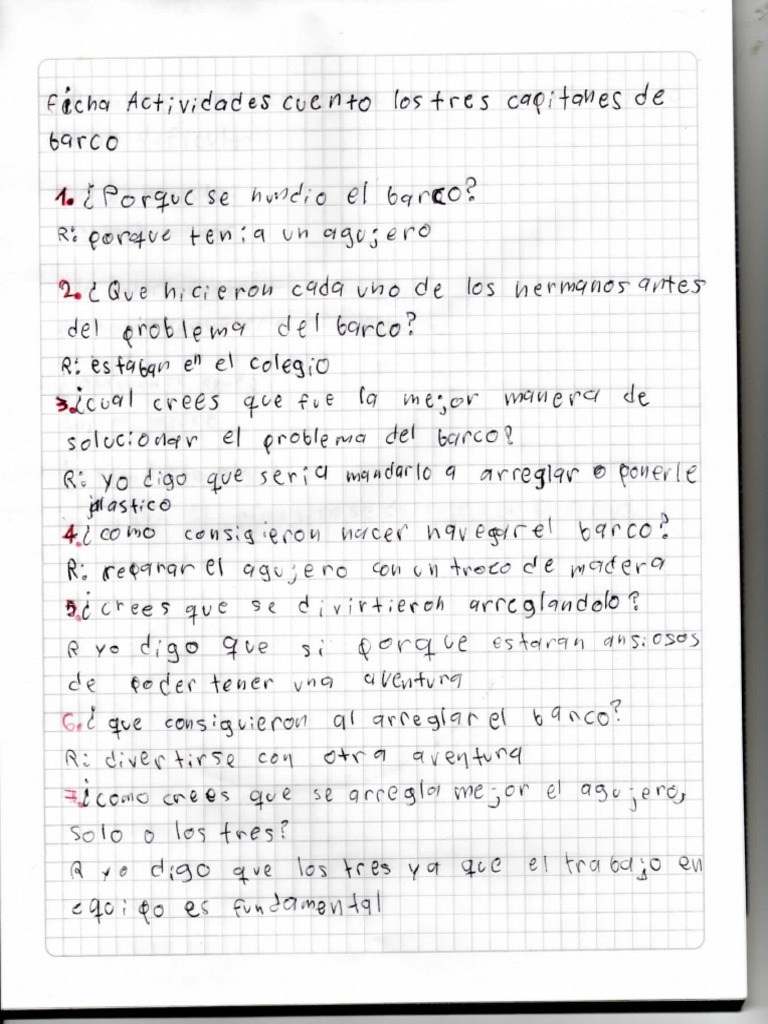 Ficha Actividades cuento los tres capitanes de
barco
1. ¿Porque se hundio el barco?
R: porque tenia un agujero
2. ¿Que hicieron cada uno de los hermanos antes
del problema del barco?
R: estaban en el colegio
3. ¿cual crees que fue la mejor manera de
solucionar el problema del barco?
R: yo digo que seria mandarlo a arreglar o ponerle
plastico
4. ¿como consigieron hacer navegar el barco?
R: reparar el agujero con un trozo de madera
5. ¿crees que se divirtieron arreglandolo?
R yo digo que si porque estaran ansiosos
de poder tener una aventura
6. ¿que consiguieron al arreglar el barco?
R: divertirse con otra aventura
7. ¿como crees que se arregla mejor el agujero,
solo o los tres?
R yo digo que los tres ya que el trabajo en
equipo es fundamental